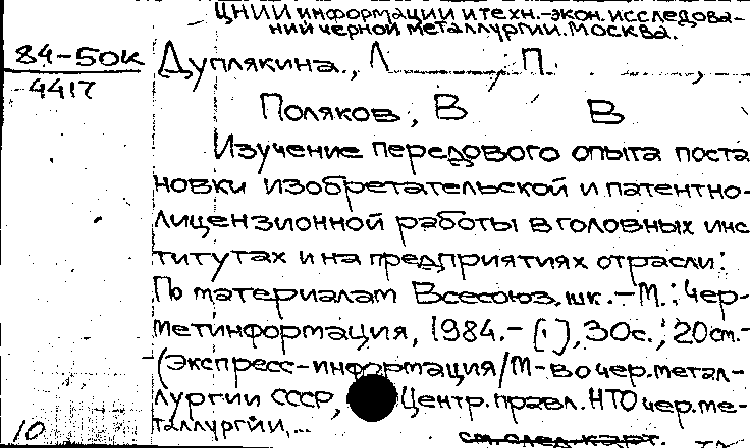 ЦНИИ информации и техн.-экон. исследова-
ний черной металлургии. Москва.
84-50к
4417
Дуплякина., Л П.
Поляков, В В
Изучение передового опыта поста
новки изобретательской и патентно-
лицензионной работы в головных инс
титутах и на предприятиях отрасли:
По материалам Всесоюз. шк. - М.: Чер-
метинформация, 1984. - [1], 30с.; 20см.-
(Экспресс-информация/М-во чер. метал-
лургии СССР, Центр. правл. НТО чер. ме-
таллургии,...
10
см. след. карт